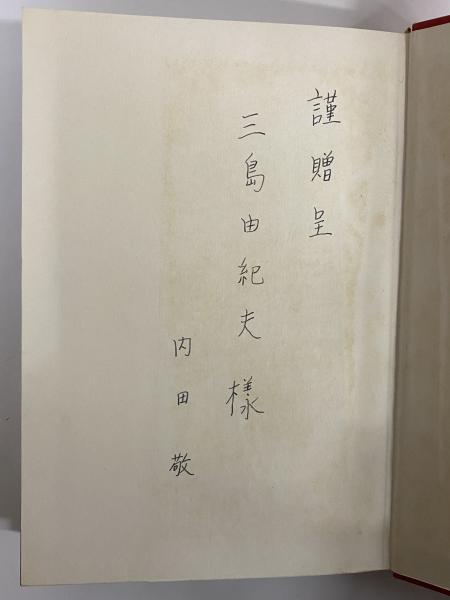 謹贈呈
三島由紀夫様
内田敬